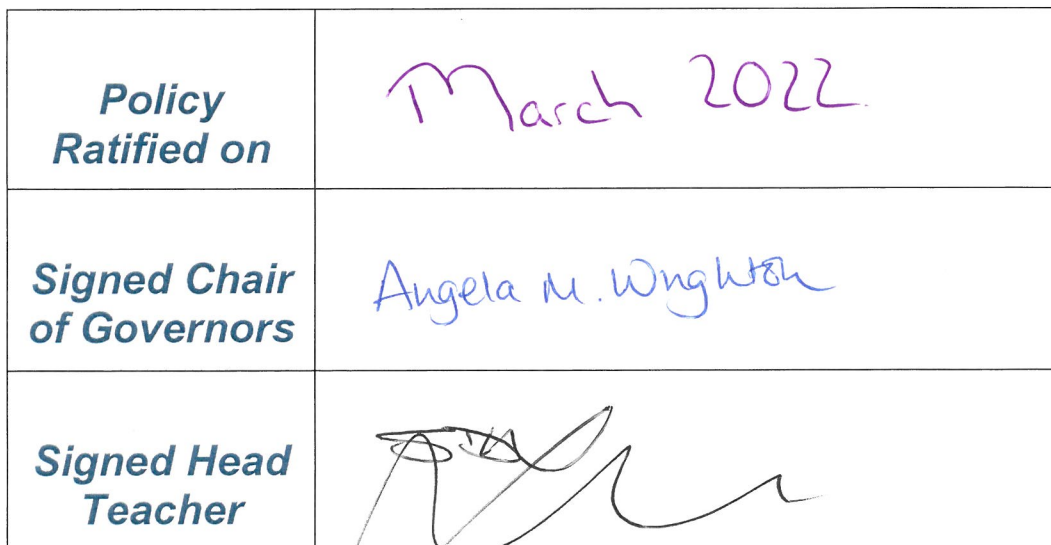 Policy
Ratified on
March 2022.
Signed Chair
of Governors
Angela M. Wrighton
Signed Head
Teacher